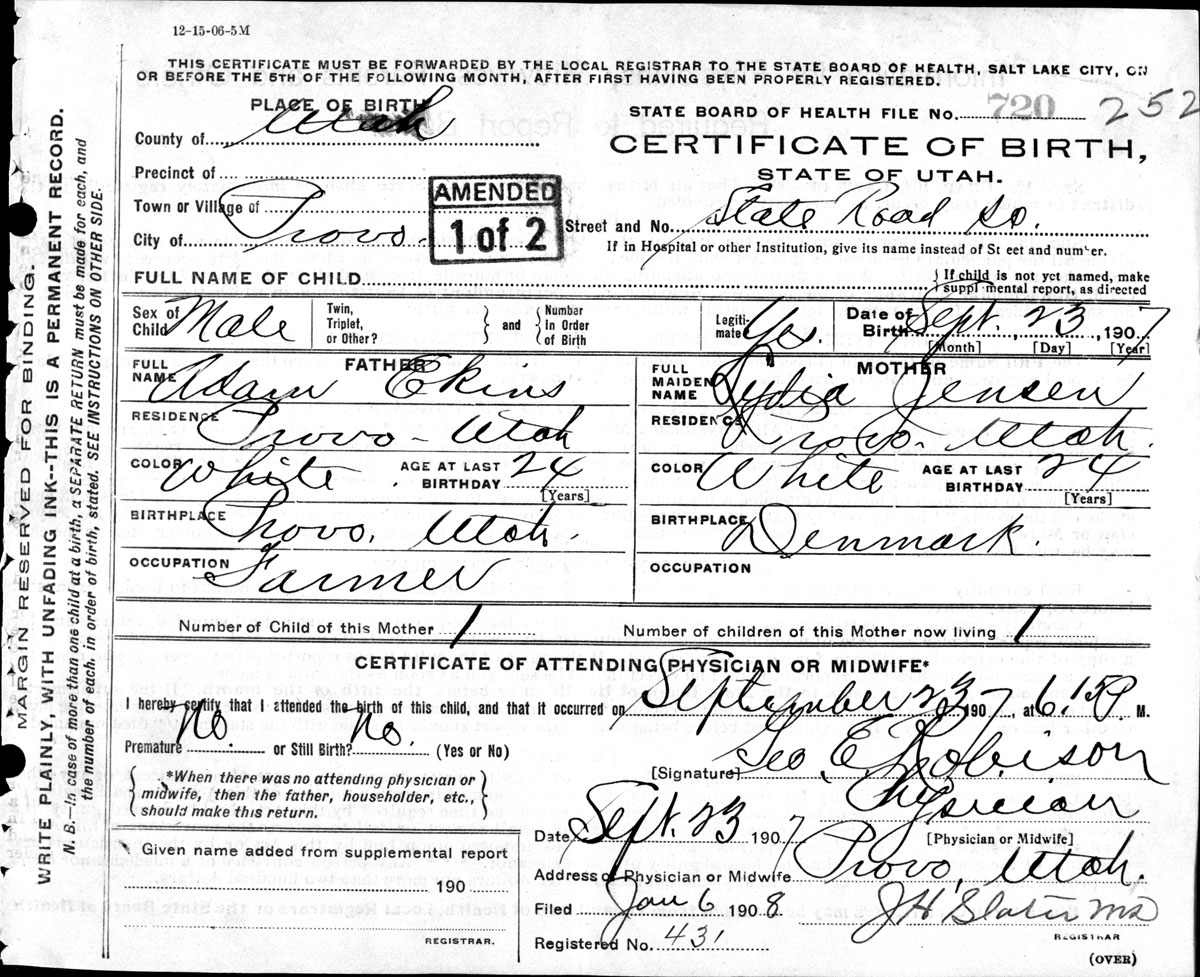 12-15-06-5M
THIS CERTIFICATE MUST BE FORWARDED BY THE LOCAL REGISTRAR TO THE STATE BOARD OF HEALTH, SALT LAKE CITY, ON
OR BEFORE THE 5TH OF THE FOLLOWING MONTH, AFTER FIRST HAVING BEEN PROPERLY REGISTERED.
PLACE OF BIRTH
STATE BOARD OF HEALTH FILE No. 720 252
County of Utah
CERTIFICATE OF BIRTH,
STATE OF UTAH.
Precinct of
Town or Village of
City of Provo.
AMENDED
1 of 2
Street and No. State Road So.
If in Hospital or other Institution, give its name instead of St eet and number.
FULL NAME OF CHILD
If child is not yet named, make
suppl mental report, as directed
Sex of Child Male
Twin, Triplet, or Other? and Number In Order of Birth
Legitimate? Yes.
Date of Birth Sept. 23, 1907
[Month] [Day] [Year]
FATHER
FULL NAME Adam Ekins
RESIDENCE Provo - Utah
COLOR White AGE AT LAST BIRTHDAY 24
[Years]
BIRTHPLACE Provo, Utah.
OCCUPATION Farmer
MOTHER
FULL MAIDEN NAME Lydia Jensen
RESIDENCE Provo - Utah.
COLOR White AGE AT LAST BIRTHDAY 24
[Years]
BIRTHPLACE Denmark.
OCCUPATION
Number of Child of this Mother 1
Number of children of this Mother now living 1
CERTIFICATE OF ATTENDING PHYSICIAN OR MIDWIFE*
I hereby certify that I attended the birth of this child, and that it occurred on September 23 1907, at 6:15 P M.
Premature No. or Still Birth? No. (Yes or No)
*When there was no attending physician or
midwife, then the father, householder, etc.,
should make this return.
[Signature] Geo. E. Robison
Physician
[Physician or Midwife]
Date Sept. 23 1907
Address of Physician or Midwife Provo, Utah.
Given name added from supplemental report
190
REGISTRAR.
Filed Jan 6 1908
J H Slater MD
REGISTRAR
Registered No. 431
(OVER)
MARGIN RESERVED FOR BINDING.
WRITE PLAINLY, WITH UNFADING INK--THIS IS A PERMANENT RECORD.
N. B.—In case of more than one child at a birth, a SEPARATE RETURN must be made for each, and
the number of each. in order of birth, stated. SEE INSTRUCTIONS ON OTHER SIDE